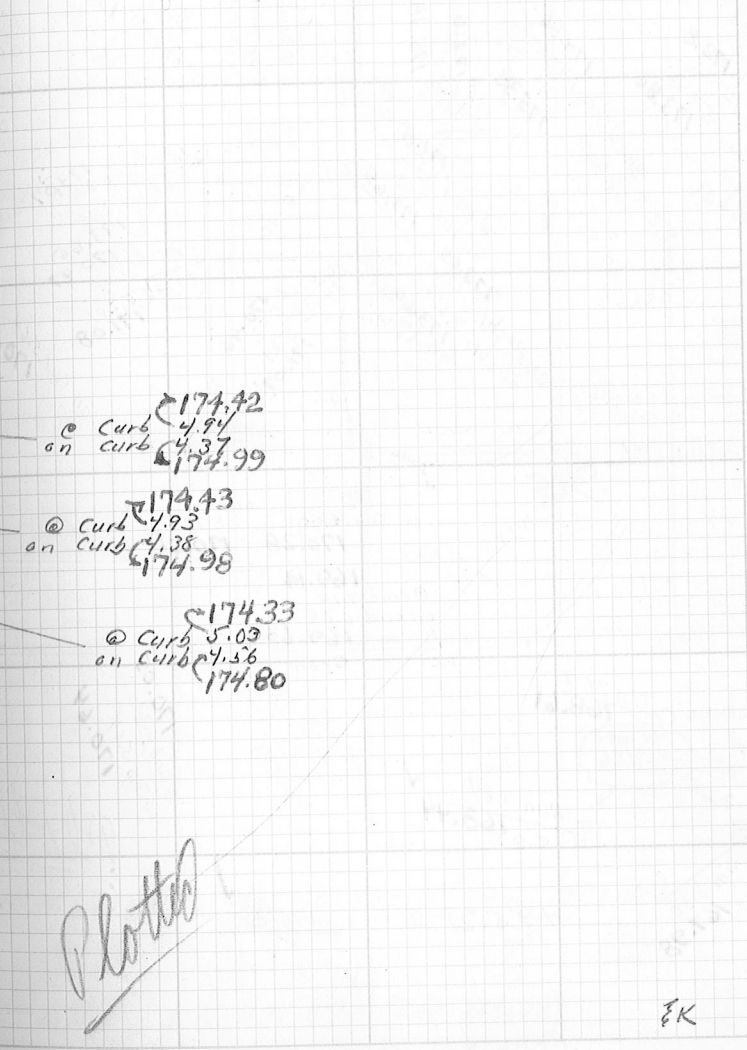 174.42
@ Curb 4.94
on curb 4.37
174.99
174.43
@ Curb 4.93
on Curb 4.38
174.98
174.33
@ Curb 5.03
on Curb 4.56
174.80
Plotted